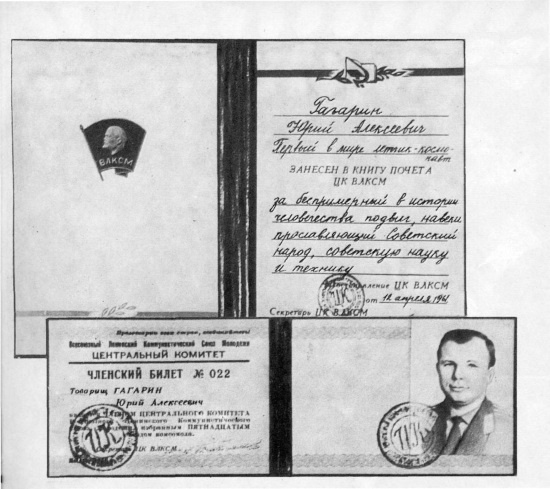 ВЛКСМ
Гагарин
Юрий Алексеевич
Первый в мире летчик-космо-
навт
ЗАНЕСЕН В КНИГУ ПОЧЕТА
ЦК ВЛКСМ
за беспримерный в истории
человечества подвиг, навеки
прославляющий Советский
народ, советскую науку
и технику
ЦК ВЛКСМ
от 12 апреля 1961
Секретарь ЦК ВЛКСМ
ЦК
Пролетарии всех стран, соединяйтесь!
Всесоюзный Ленинский Коммунистический Союз Молодежи
ЦЕНТРАЛЬНЫЙ КОМИТЕТ
ЧЛЕНСКИЙ БИЛЕТ № 022
Товарищ ГАГАРИН
Юрий Алексеевич
ЦЕНТРАЛЬНОГО КОМИТЕТА
Коммунистического
избранным ПЯТНАДЦАТЫМ
комсомола.
ЦК ВЛКСМ
ЦК
ЦК